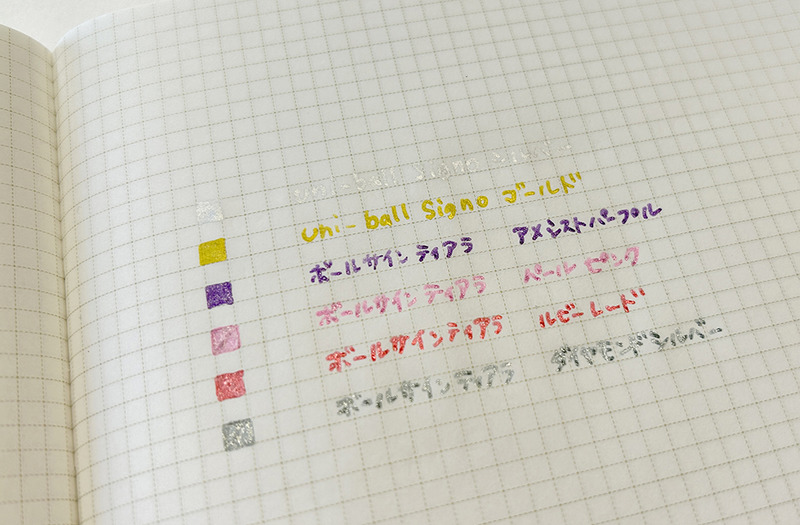 uni-ball Signo
uni-ball Signo ゴールド
ボールサイン ティアラ アメシストパープル
ボールサイン ティアラ ペールピンク
ボールサインティアラ ルビーレード
ボールサインティアラ ダイヤモンドシルバー